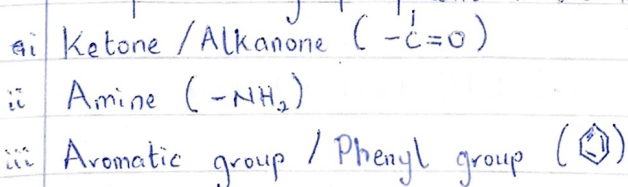 ai Ketone / Alkanone ( -C=O )
ii Amine ( -NH₂ )
iii Aromatic group / Phenyl group ( )